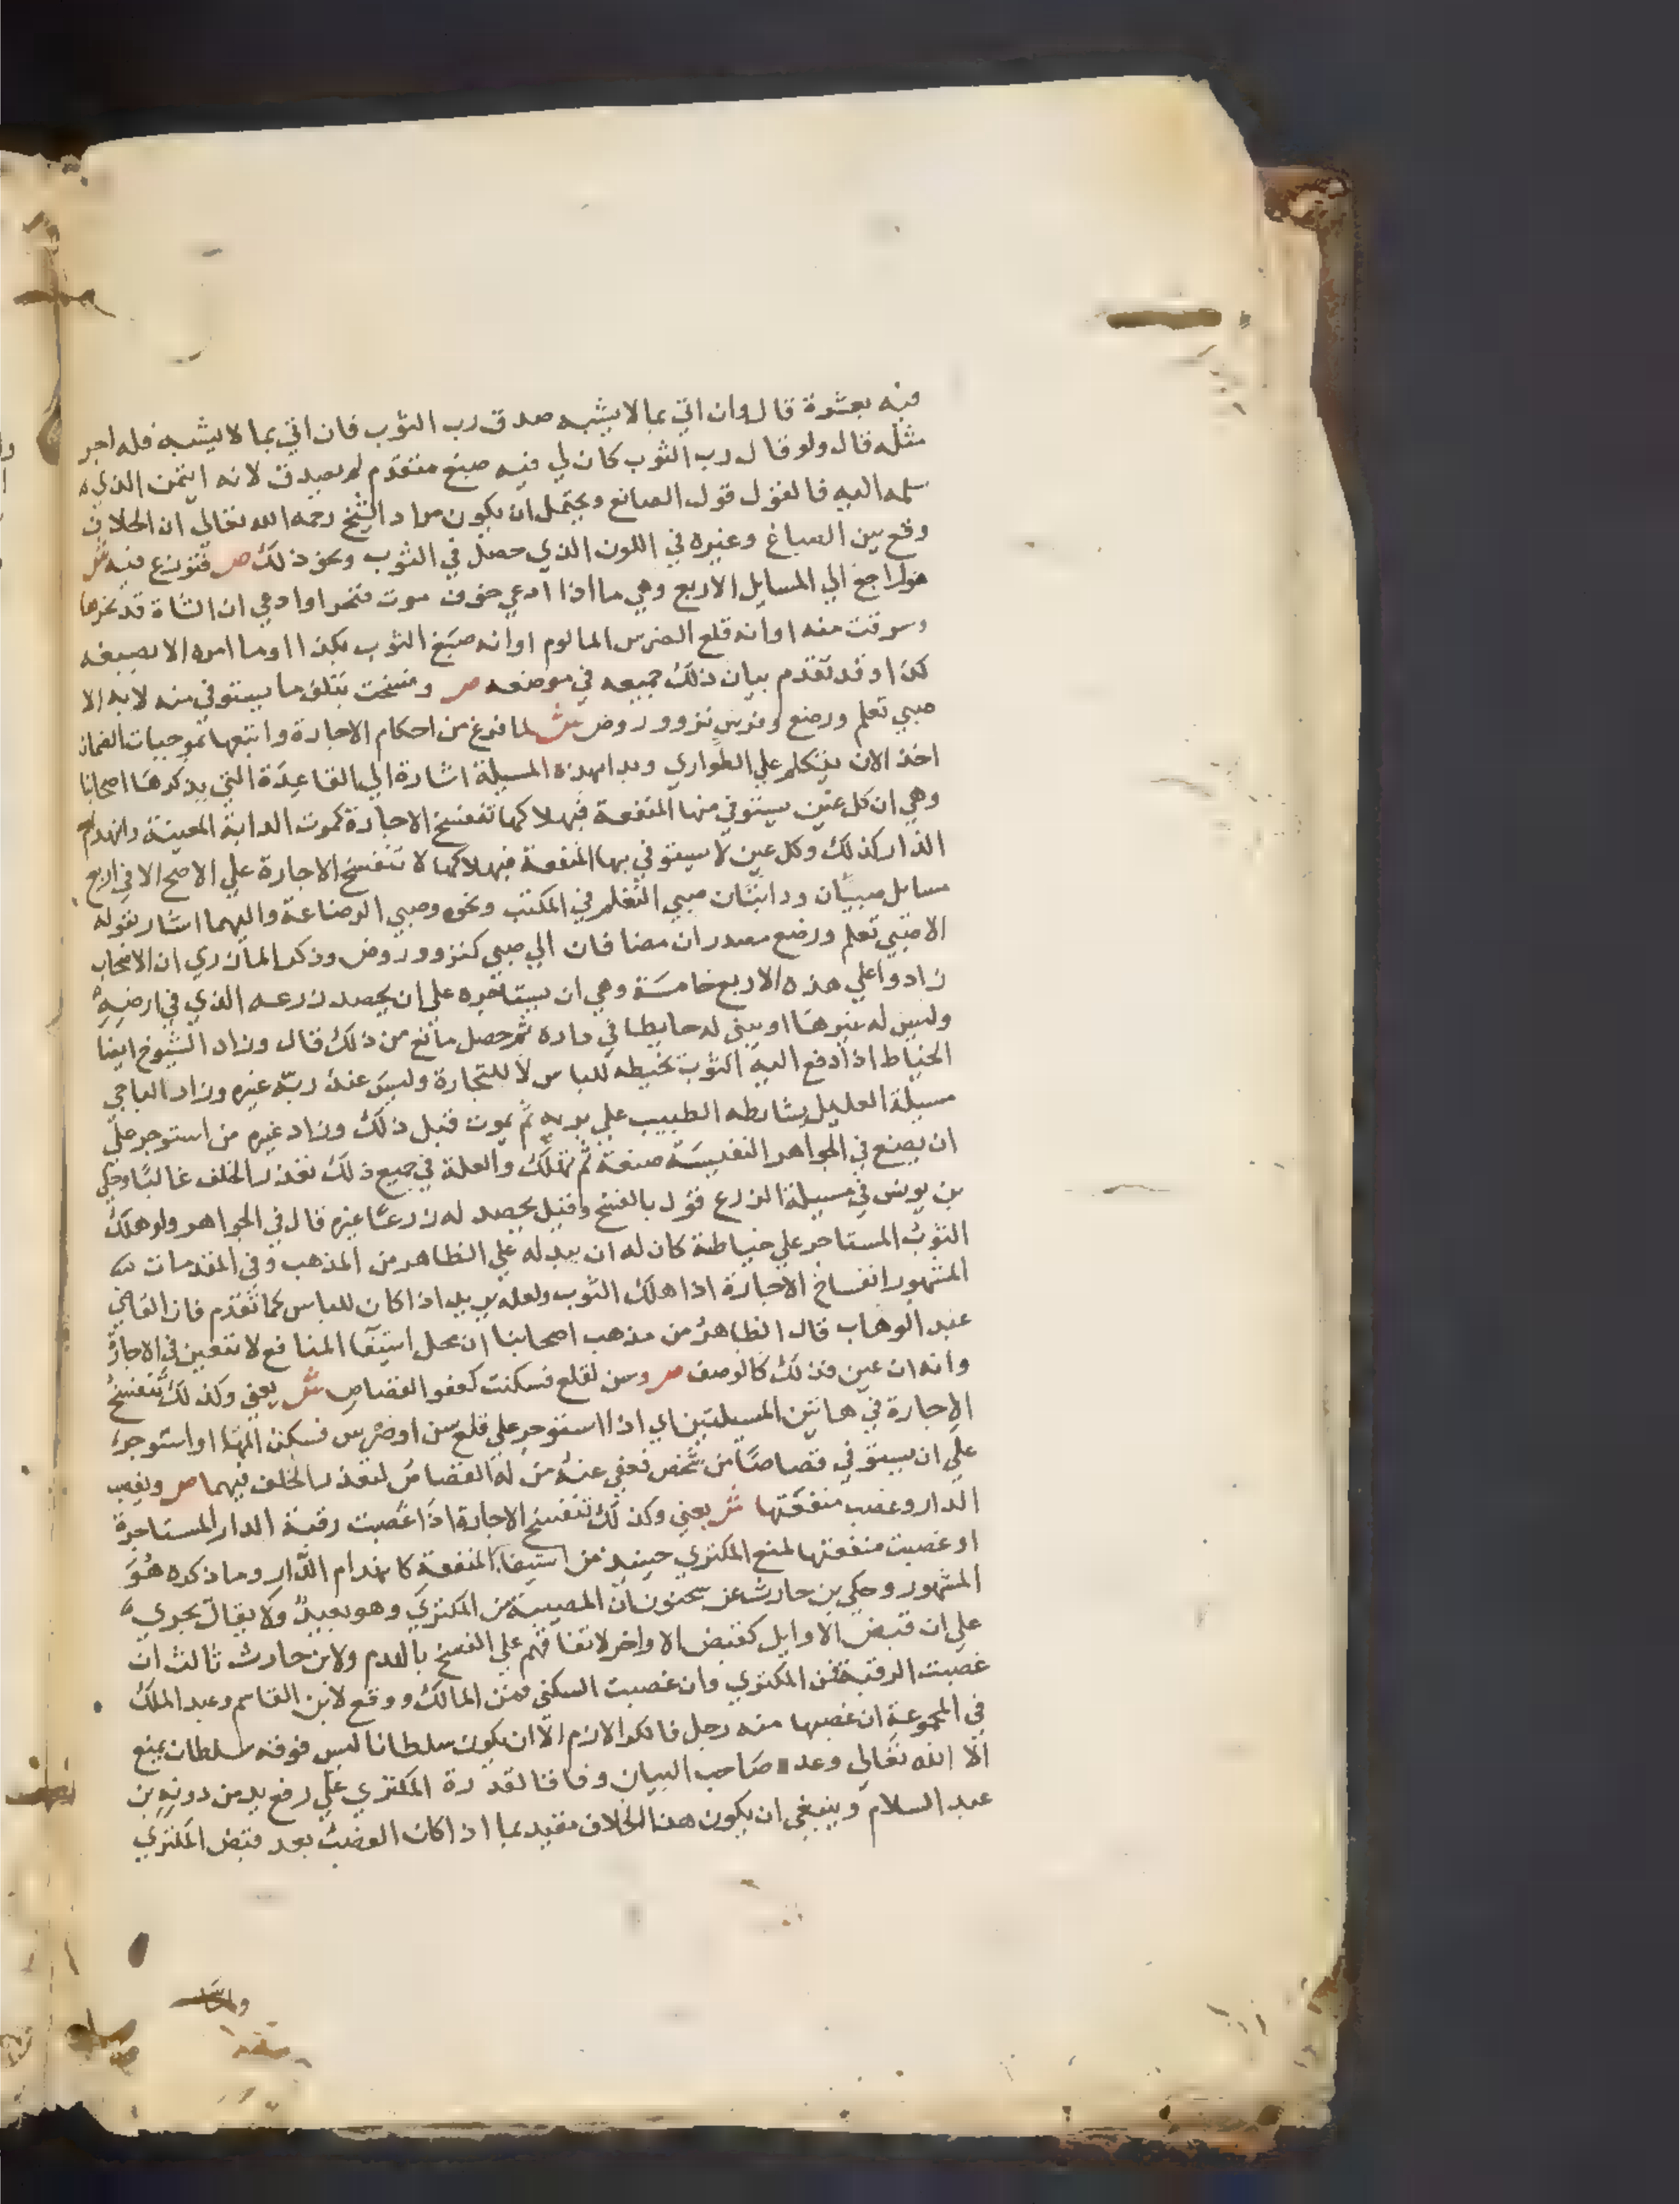 فيه بعشرة قال وان اتي بما لا يشبه صدق رب الثوب فان اتي بما لا يشبه فله اجر
مثله قال ولو قال رب الثوب كان لي فيه صبغ متقدم لم يصدق لانه ايتمن الذي
سلمه اليه فالقول قول الصانع ويحتمل ان يكون مراد الشيخ رحمه الله تعالى ان الخلاف
وقع بين الصباغ وغيره في اللون الذي حصل في الثوب ونحو ذلك ص فنوزع فيه ش
هو راجع الي المسايل الاربع وهي ما اذا ادعي خوف موت فنحر او ادعي ان الشاة قد نحرها
وسرقت منه او انه قلع الضرس المالوم او انه صبغ الثوب بكذا او ما امره الا بصبغه
كذا وقد تقدم بيان ذلك جميعه في موضعه ص وفسخت بتلف ما يستوفي منه لا به الا
صبي تعلم ورضع وفرس نزو وروض ش لما فرغ من احكام الاجارة واتبعها بموجبات الضمان
اخذ الان يتكلم علي الطواري وبدا بهذه المسيلة اشارة الي القاعدة التي يذكرها اصحابنا
وهي ان كل عين يستوفي منها المنفعة فبهلاكها تنفسخ الاجارة كموت الدابة المعينة وانهدام
الدار كذلك وكل عين لا يستوفي بها المنفعة فبهلاكها لا تنفسخ الاجارة علي الاصح الا في اربع
مسايل صبيان ودابتان صبي التعلم في المكتب ونحوه وصبي الرضاعة واليهما اشار بقوله
الا صبي تعلم ورضع مصدران مضافان الي صبي كنزو وروض وذكر المازري ان الاصحاب
زادوا علي هذه الاربع خامسة وهي ان يستاجره علي ان يحصد زرعه الذي في ارضه
وليس له غيرها او يبني له حايطا في داره ثم حصل مانع من ذلك قال وزاد الشيوخ ايضا
الخياط اذا دفع اليه الثوب يخيطه للباس لا للتجارة وليس عند ربه غيره وزاد الباجي
مسيلة العليل يشارطه الطبيب علي بريه ثم يموت قبل ذلك وزاد غيره من استوجر علي
ان يصنع في الجواهر النفيسة صنعة ثم تهلك والعلة في جميع ذلك تعذر الخلف غالبا وحكي
بن يونس في مسيلة الزرع قول بالفسخ وقيل يحصد له زرعا غيره قال في الجواهر ولو هلك
الثوب المستاجر علي خياطته كان له ان يبدله علي الظاهر من المذهب وفي المقدمات
المشهور انفساخ الاجارة اذا هلك الثوب ولعله يريد اذا كان للباس كما تقدم فان القاضي
عبد الوهاب قال الظاهر من مذهب اصحابنا ان محل استيفا المنافع لا تتعين في الاجارة
وانه ان عين فذلك كالوصف ص وسن لقلع فسكنت كعفو القصاص ش يعني وكذلك تنفسخ
الاجارة في هاتين المسيلتين اي اذا استوجر علي قلع سن او ضرس فسكن المها او استوجر
علي ان يستوفي قصاصا من شخص فعفي عنه من له القصاص لتعذر الخلف فيهما ص وبغصب
الدار وغصب منفعتها ش يعني وكذلك تنفسخ الاجارة اذا غصبت رقبة الدار المستاجرة
او غصبت منفعتها لمنع المكتري حينيذ من استيفا المنفعة كانهدام الدار وما ذكره هو
المشهور وحكي بن حارث عن سحنون ان المصيبة من المكتري وهو بعيد ولا يقال يجري
علي ان قبض الاوايل كقبض الاواخر لاتفاقهم علي الفسخ بالهدم ولابن حارث ثالث ان
غصبت الرقبة فمن المكتري وان غصبت السكني فمن المالك ووقع لابن القاسم وعبد الملك
في المجموعة ان غصبها منه رجل فالكرا لازم الا ان يكون سلطانا ليس فوقه سلطان يمنع
الا الله تعالى وعده صاحب البيان وفاقا لقدرة المكتري علي رفع يد من دونه بن
عبد السلام وينبغي ان يكون هذا الخلاف مقيد بما اذا كان الغصب بعد قبض المكتري